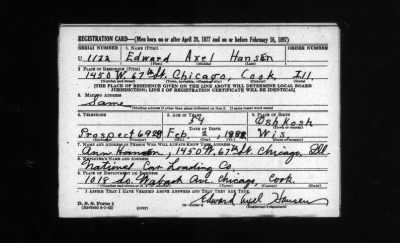 REGISTRATION CARD—(Men born on or after April 28, 1877 and on or before February 16, 1897)
SERIAL NUMBER 1. NAME (Print) ORDER NUMBER
U 1122 Edward Axel Hansen
(First) (Middle) (Last)
2. PLACE OF RESIDENCE (Print)
1450 W. 67th St. Chicago, Cook, Ill.
(Number and street) (Town, township, village, or city) (County) (State)
[THE PLACE OF RESIDENCE GIVEN ON THE LINE ABOVE WILL DETERMINE LOCAL BOARD
JURISDICTION; LINE 2 OF REGISTRATION CERTIFICATE WILL BE IDENTICAL]
3. MAILING ADDRESS
Same
[Mailing address if other than place indicated on line 2. If same insert word same]
4. TELEPHONE 5. AGE IN YEARS 6. PLACE OF BIRTH
54 Oshkosh
DATE OF BIRTH
Prospect 6928 Feb 2, 1888 Wis.
7. NAME AND ADDRESS OF PERSON WHO WILL ALWAYS KNOW YOUR ADDRESS
Ana Hansen, 1450 W. 67th St. Chicago, Ill
8. EMPLOYER'S NAME AND ADDRESS
National Car Loading Co.
9. PLACE OF EMPLOYMENT OR BUSINESS
1018 So. Wabash Ave. Chicago, Cook.
I AFFIRM THAT I HAVE VERIFIED ABOVE ANSWERS AND THAT THEY ARE TRUE.
D. S. S. Form 1
(Revised 4-1-42)
Edward Axel Hansen